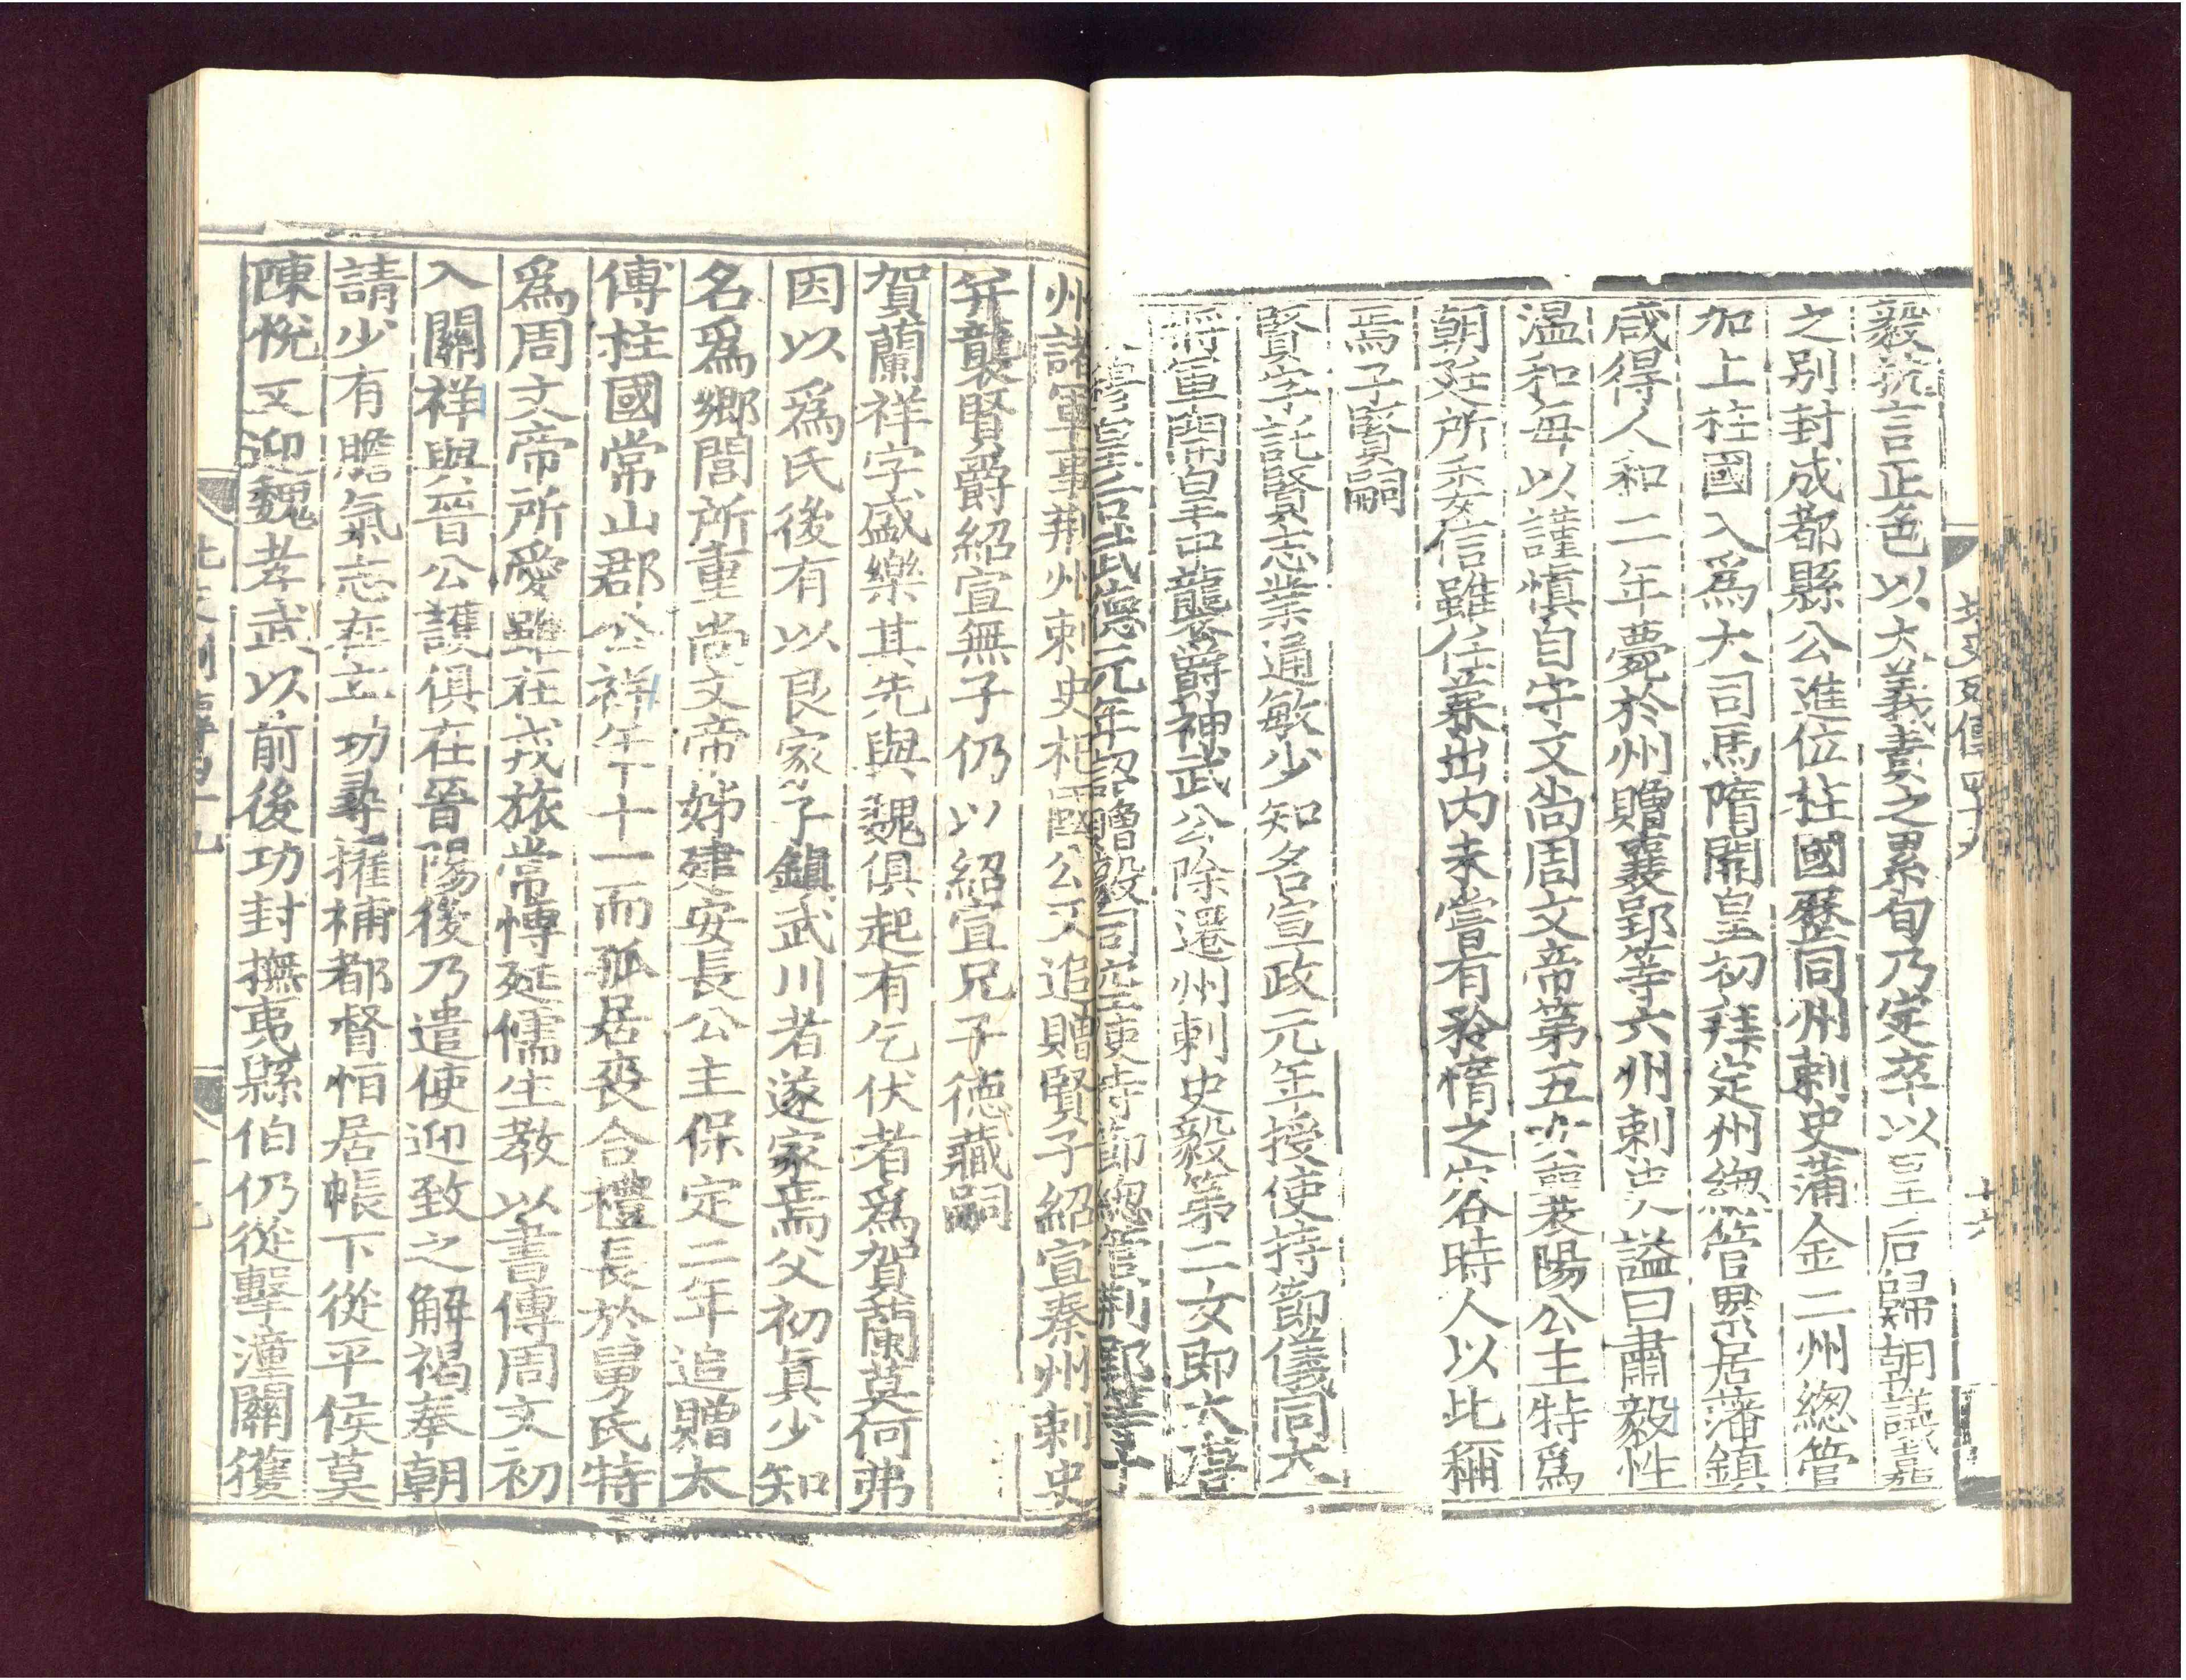 毅抗言正色以大義責之累旬乃定卒以皇后歸朝議嘉
之別封成都縣公進位柱國歷同州刺史蒲金二州總管
加上柱國入爲大司馬隋開皇初拜定州緫管累居藩鎮
咸得人和二年薨於州贈襄郢等六州刺史謚曰肅毅性
温和每以謹慎自守又尚周文帝第五女襄陽公主特爲
朝廷所委信雖任兼出内未嘗有矜惰之容時人以此稱
焉子賢嗣
賢字託賢志業通敏少知名宣政元年授使持節儀同大
將軍開皇中襲爵神武公除遷州刺史毅第二女即大唐
穆皇后武德元年詔贈毅司空使持節緫管荆郢等十
州諸軍事荆州刺史杞國公又追贈賢子紹宣秦州刺史
并襲賢爵紹宣無子仍以紹宣兄子德藏嗣
賀蘭祥字盛樂其先與魏俱起有乞伏者爲賀蘭莫何弗
因以爲氏後有以良家子鎮武川者遂家焉父初真少知
名爲鄉閭所重尚文帝姊建安長公主保定二年追贈太
傅柱國常山郡公祥年十一而孤居喪合禮長於舅氏特
爲周文帝所愛雖在戎旅常博延儒生教以書傳周文初
入關祥與晉公護俱在晉陽後乃遣使迎致之解褐奉朝
請少有膽氣志在立功尋擢補都督恒居帳下從平侯莫
陳悅又迎魏孝武以前後功封撫夷縣伯仍從擊潼關獲
北史列傳四十九